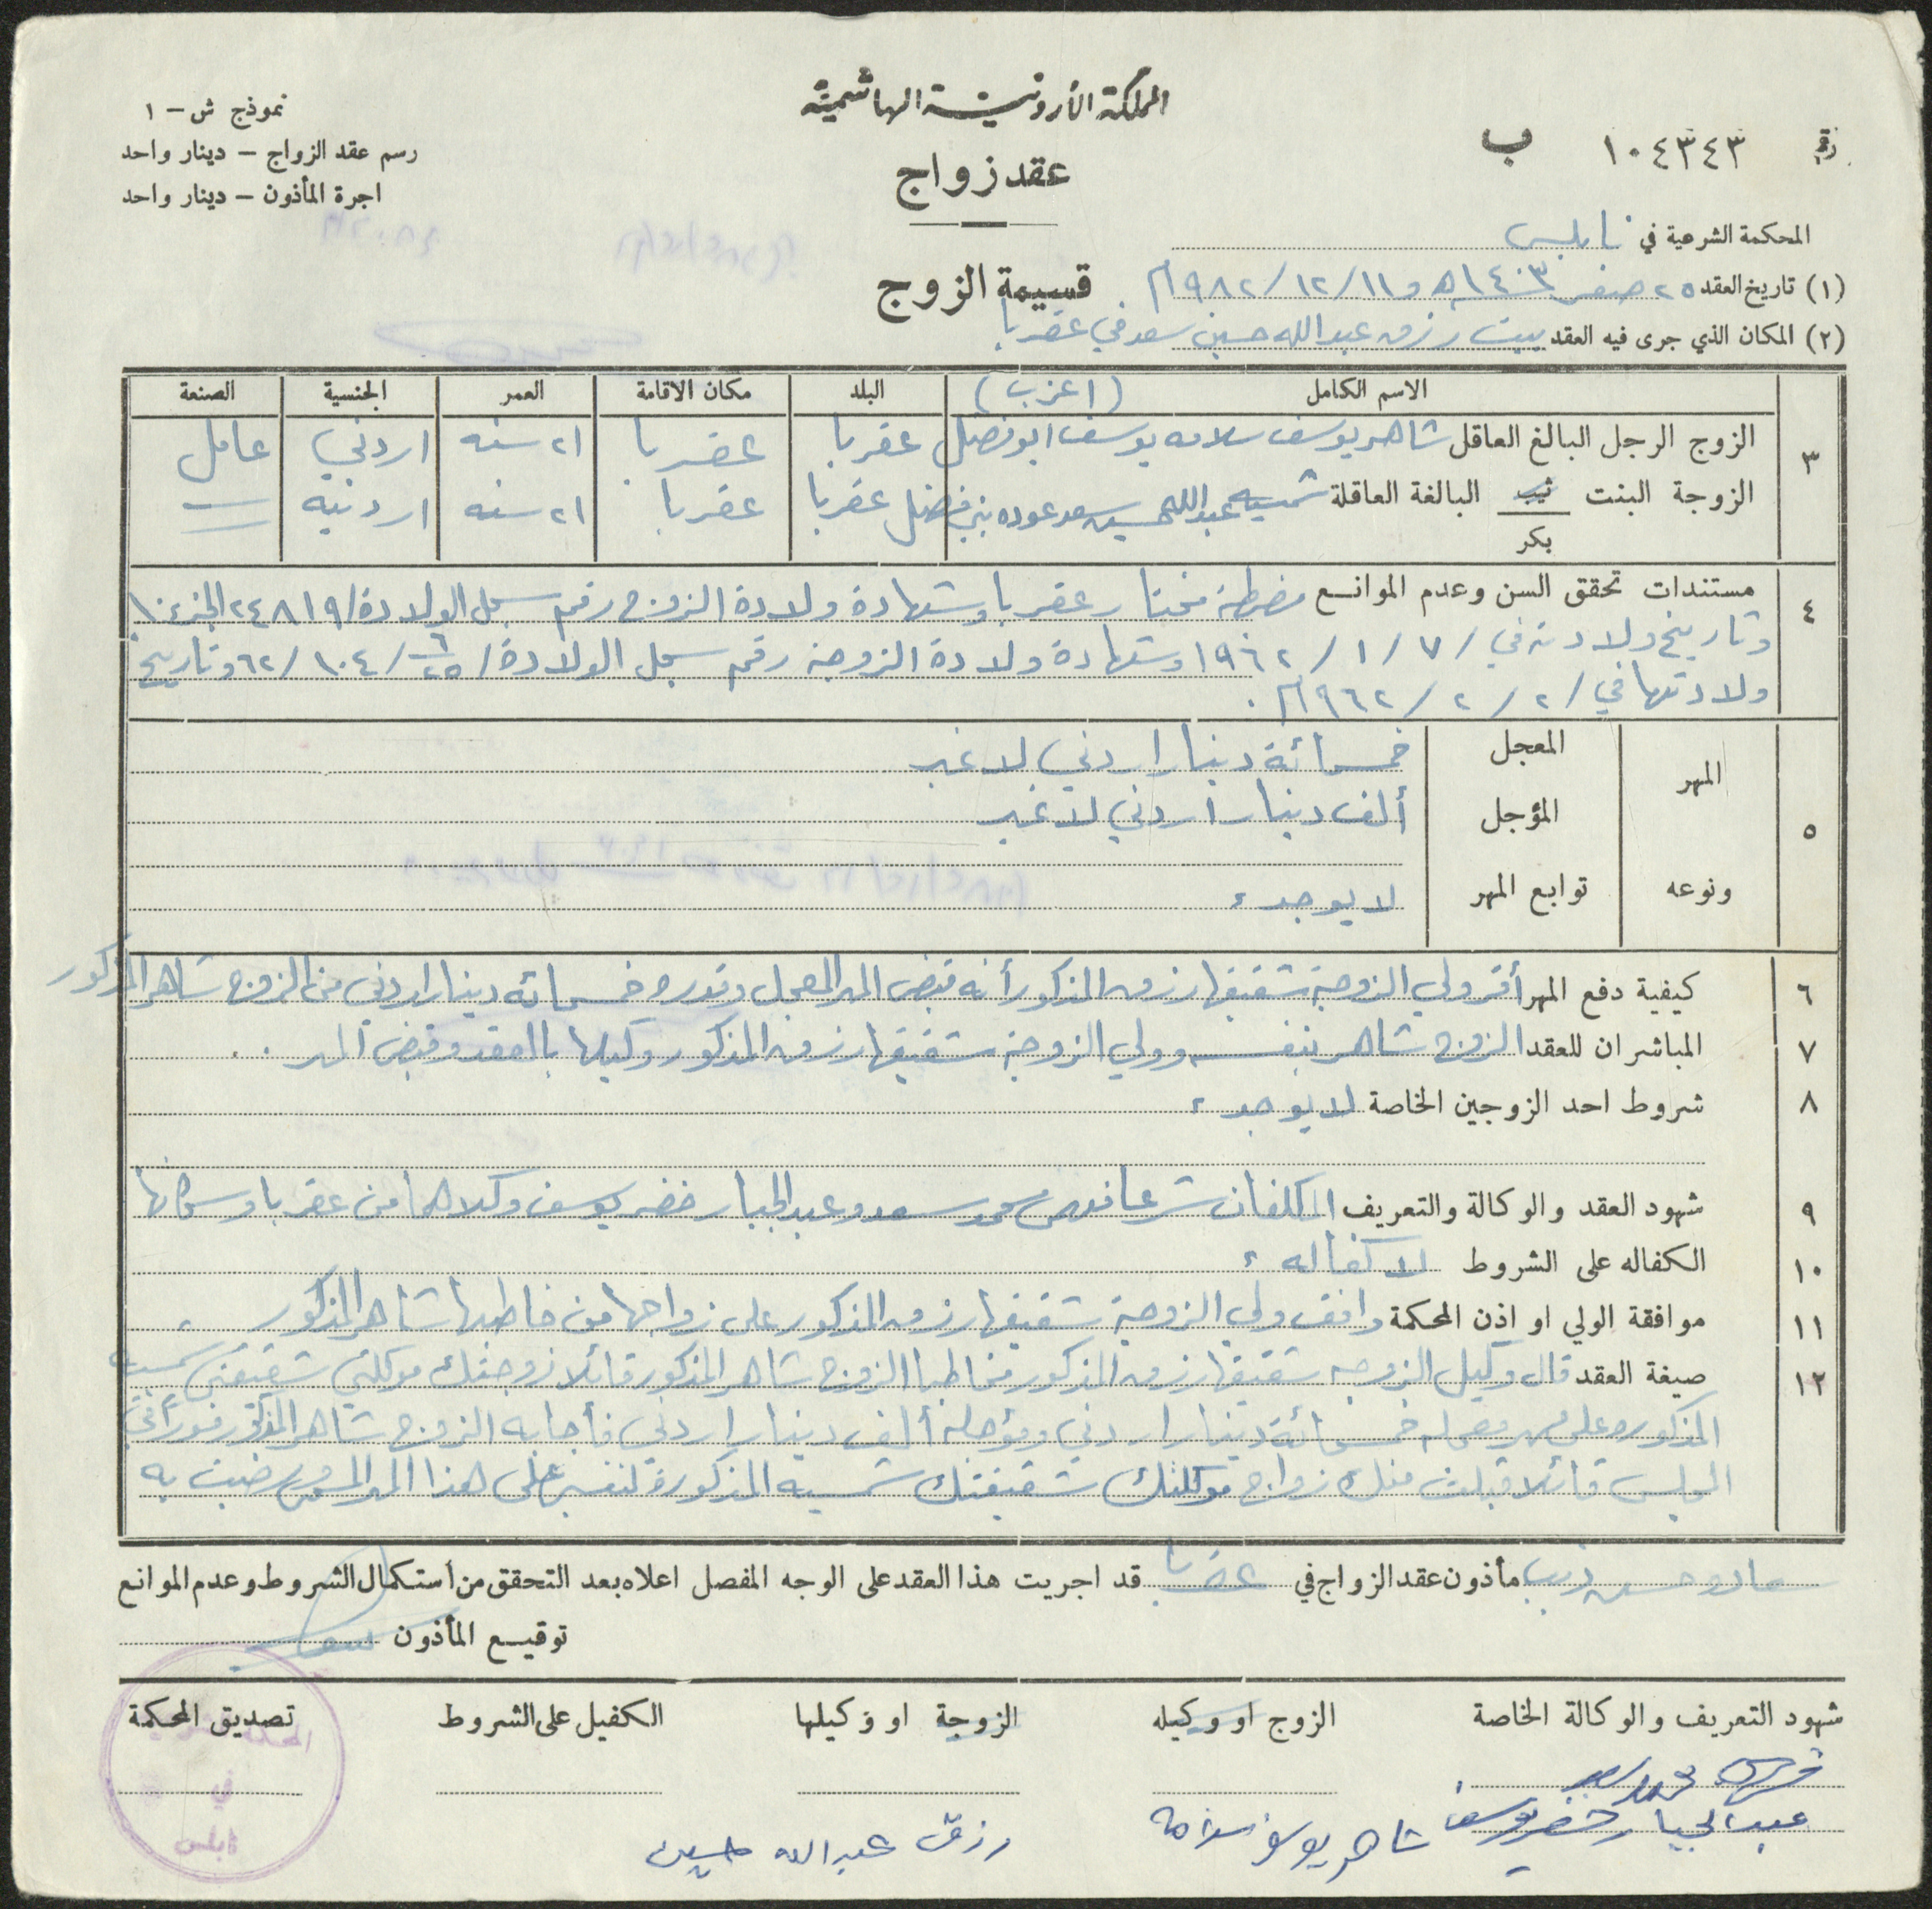 المملكة الأردنية الهاشمية
نموذج ش - ١
رقم ١٠٤٣٤٣ ب
رسم عقد الزواج - دينار واحد
عقد زواج
اجرة المأذون - دينار واحد
المحكمة الشرعية في نابلس
قسيمة الزوج
(١) تاريخ العقد ٢٥ صفر ١٤٠٣هـ و ١١/١٢/١٩٨٢م
(٢) المكان الذي جرى فيه العقد بيت رزق عبدالله حسين سعد في عقربا
الاسم الكامل (اعزب) البلد مكان الاقامة العمر الجنسية الصنعة
٣ الزوج الرجل البالغ العاقل شاهر يوسف سلامه يوسف ابو فضل عقربا عقربا ٢١ سنه اردني عامل
الزوجة البنت ثيب البالغة العاقلة شمسيه عبدالله حسين سعد عوده بني فضل عقربا عقربا ٢١ سنه اردنية
بكر
٤ مستندات تحقق السن وعدم الموانع مضبطة مختار عقربا وشهادة ولادة الزوج رقم سجل الولادة/٢٤٨١٩ الجزء/١٠
وتاريخ ولادته في/ ٧/ ١/ ١٩٦٢ وشهادة ولادة الزوجة رقم سجل الولادة/ ٦/٢٥/ ١٠٤/ ٦٢ وتاريخ
ولادتها في/ ٢/ ٢/ ١٩٦٢م.
٥ المهر المعجل خمسمائة دينار اردني لا غير
المؤجل ألف دينار اردني لا غير
ونوعه توابع المهر لا يوجد
٦ كيفية دفع المهر أقر ولي الزوجة شقيقها رزق المذكور أنه قبض المهر المعجل وقدره خمسمائه دينار اردني من الزوج شاهر المذكور
٧ المباشران للعقد الزوج شاهر بنفسه وولي الزوجة شقيقها رزق المذكور وكيلها بالعقد وقبض المهر ..
٨ شروط احد الزوجين الخاصة لا يوجد
٩ شهود العقد والوكالة والتعريف المكلفان شرعا محمد سعد و عبدالجبار خضر يوسف وكلاهما من عقربا وسكانها
١٠ الكفاله على الشروط لا كفاله
١١ موافقة الولي او اذن المحكمة وافق ولي الزوجة شقيقها رزق المذكور على زواجها من خاطبها شاهر المذكور
١٢ صيغة العقد قال وكيل الزوجه شقيقها رزق المذكور مخاطبا الزوج شاهر المذكور قائلا زوجتك موكلتي شقيقتي شمسيه
المذكوره على مهر معجله خمسمائة دينار اردني ومؤجله ألف دينار اردني فأجابه الزوج شاهر المذكور فورا في
المجلس قائلا قبلت منك زواج موكلتك شقيقتك شمسيه المذكورة لنفسي على هذا المهر المسمى ورضيت به
حسين ذيب مأذون عقد الزواج في عقربا قد اجريت هذا العقد على الوجه المفصل اعلاه بعد التحقق من أستكمال الشروط وعدم الموانع
توقيع المأذون
شهود التعريف والوكالة الخاصة الزوج او وكيله الزوجة او وكيلها الكفيل على الشروط تصديق المحكمة
محمد سعد
عبدالجبار خضر يوسف شاهر يوسف سلامه رزق عبدالله حسين
المحكمة
في
نابلس